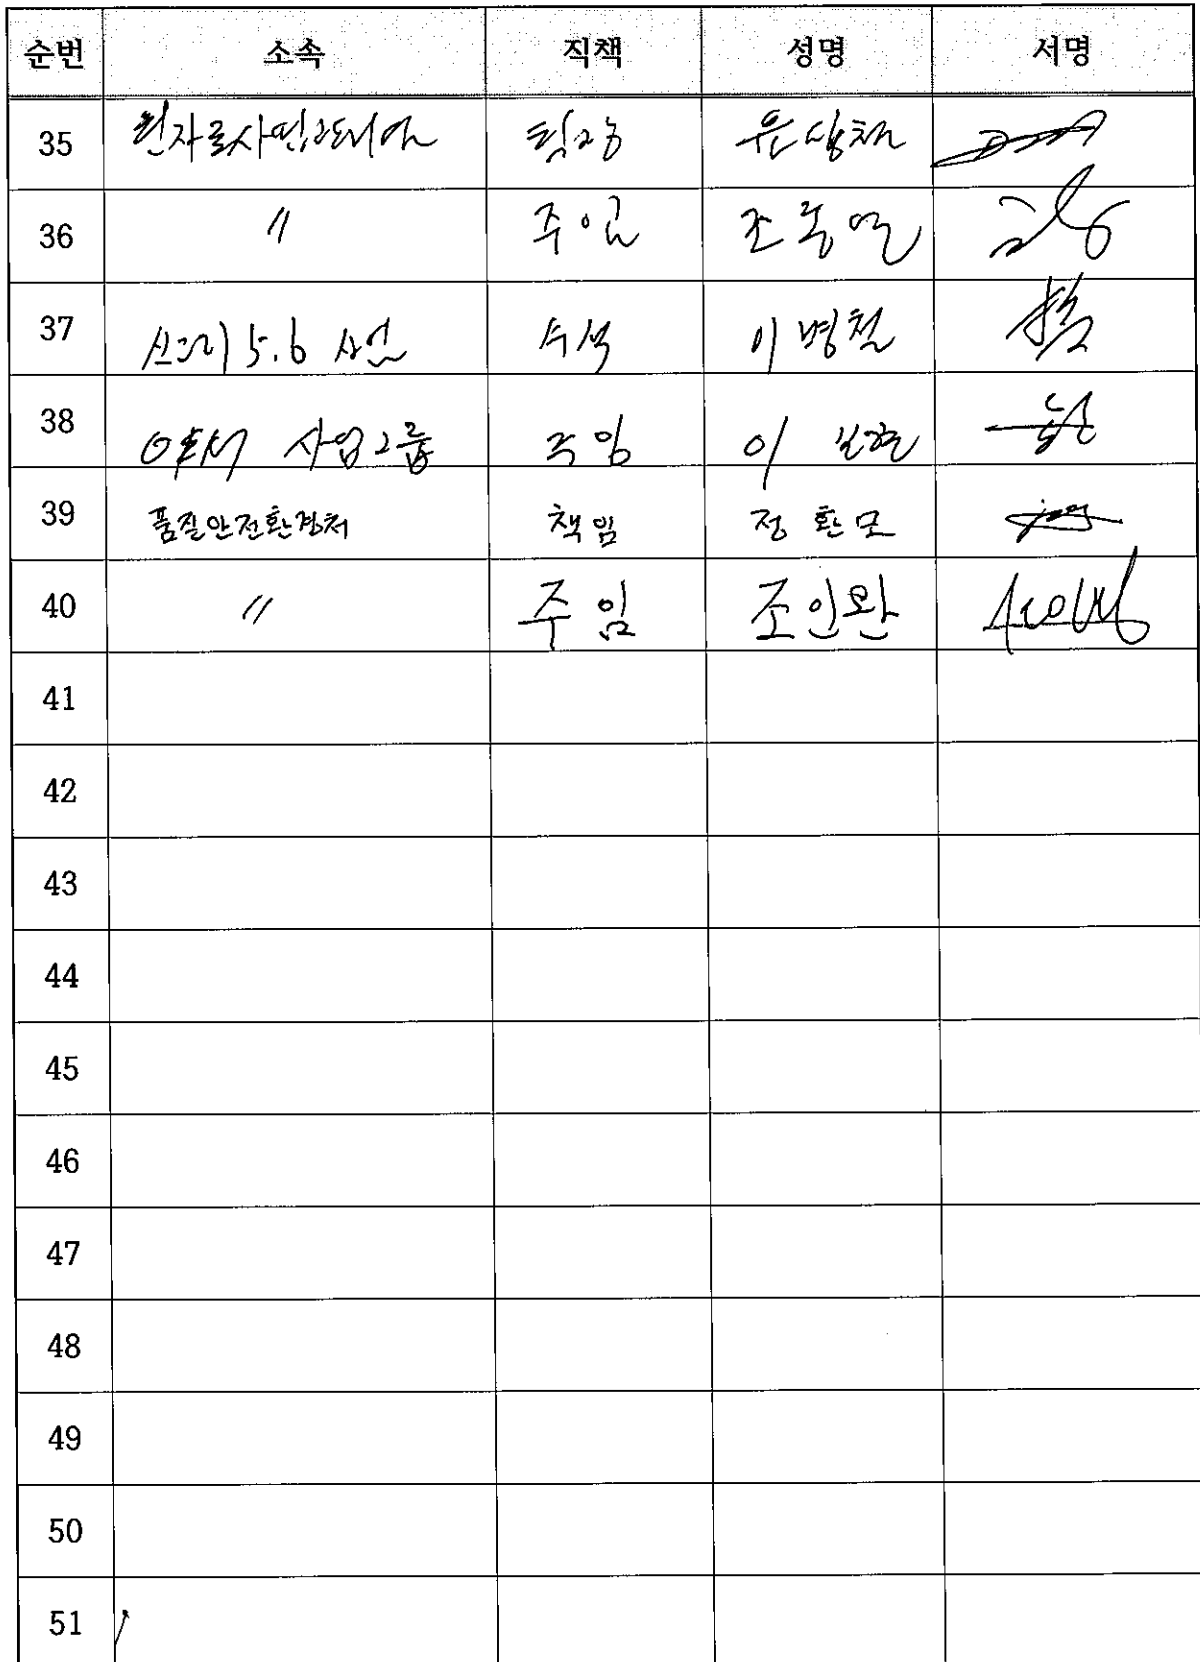 순번 소속 직책 성명 서명
35 팀장 윤상채
36 〃 주임 조동열
37 신고리 5.6 사업 수석 이병철
38 사업그룹 주임 이
39 품질안전환경처 책임 정환모
40 〃 주임 조인완
41
42
43
44
45
46
47
48
49
50
51